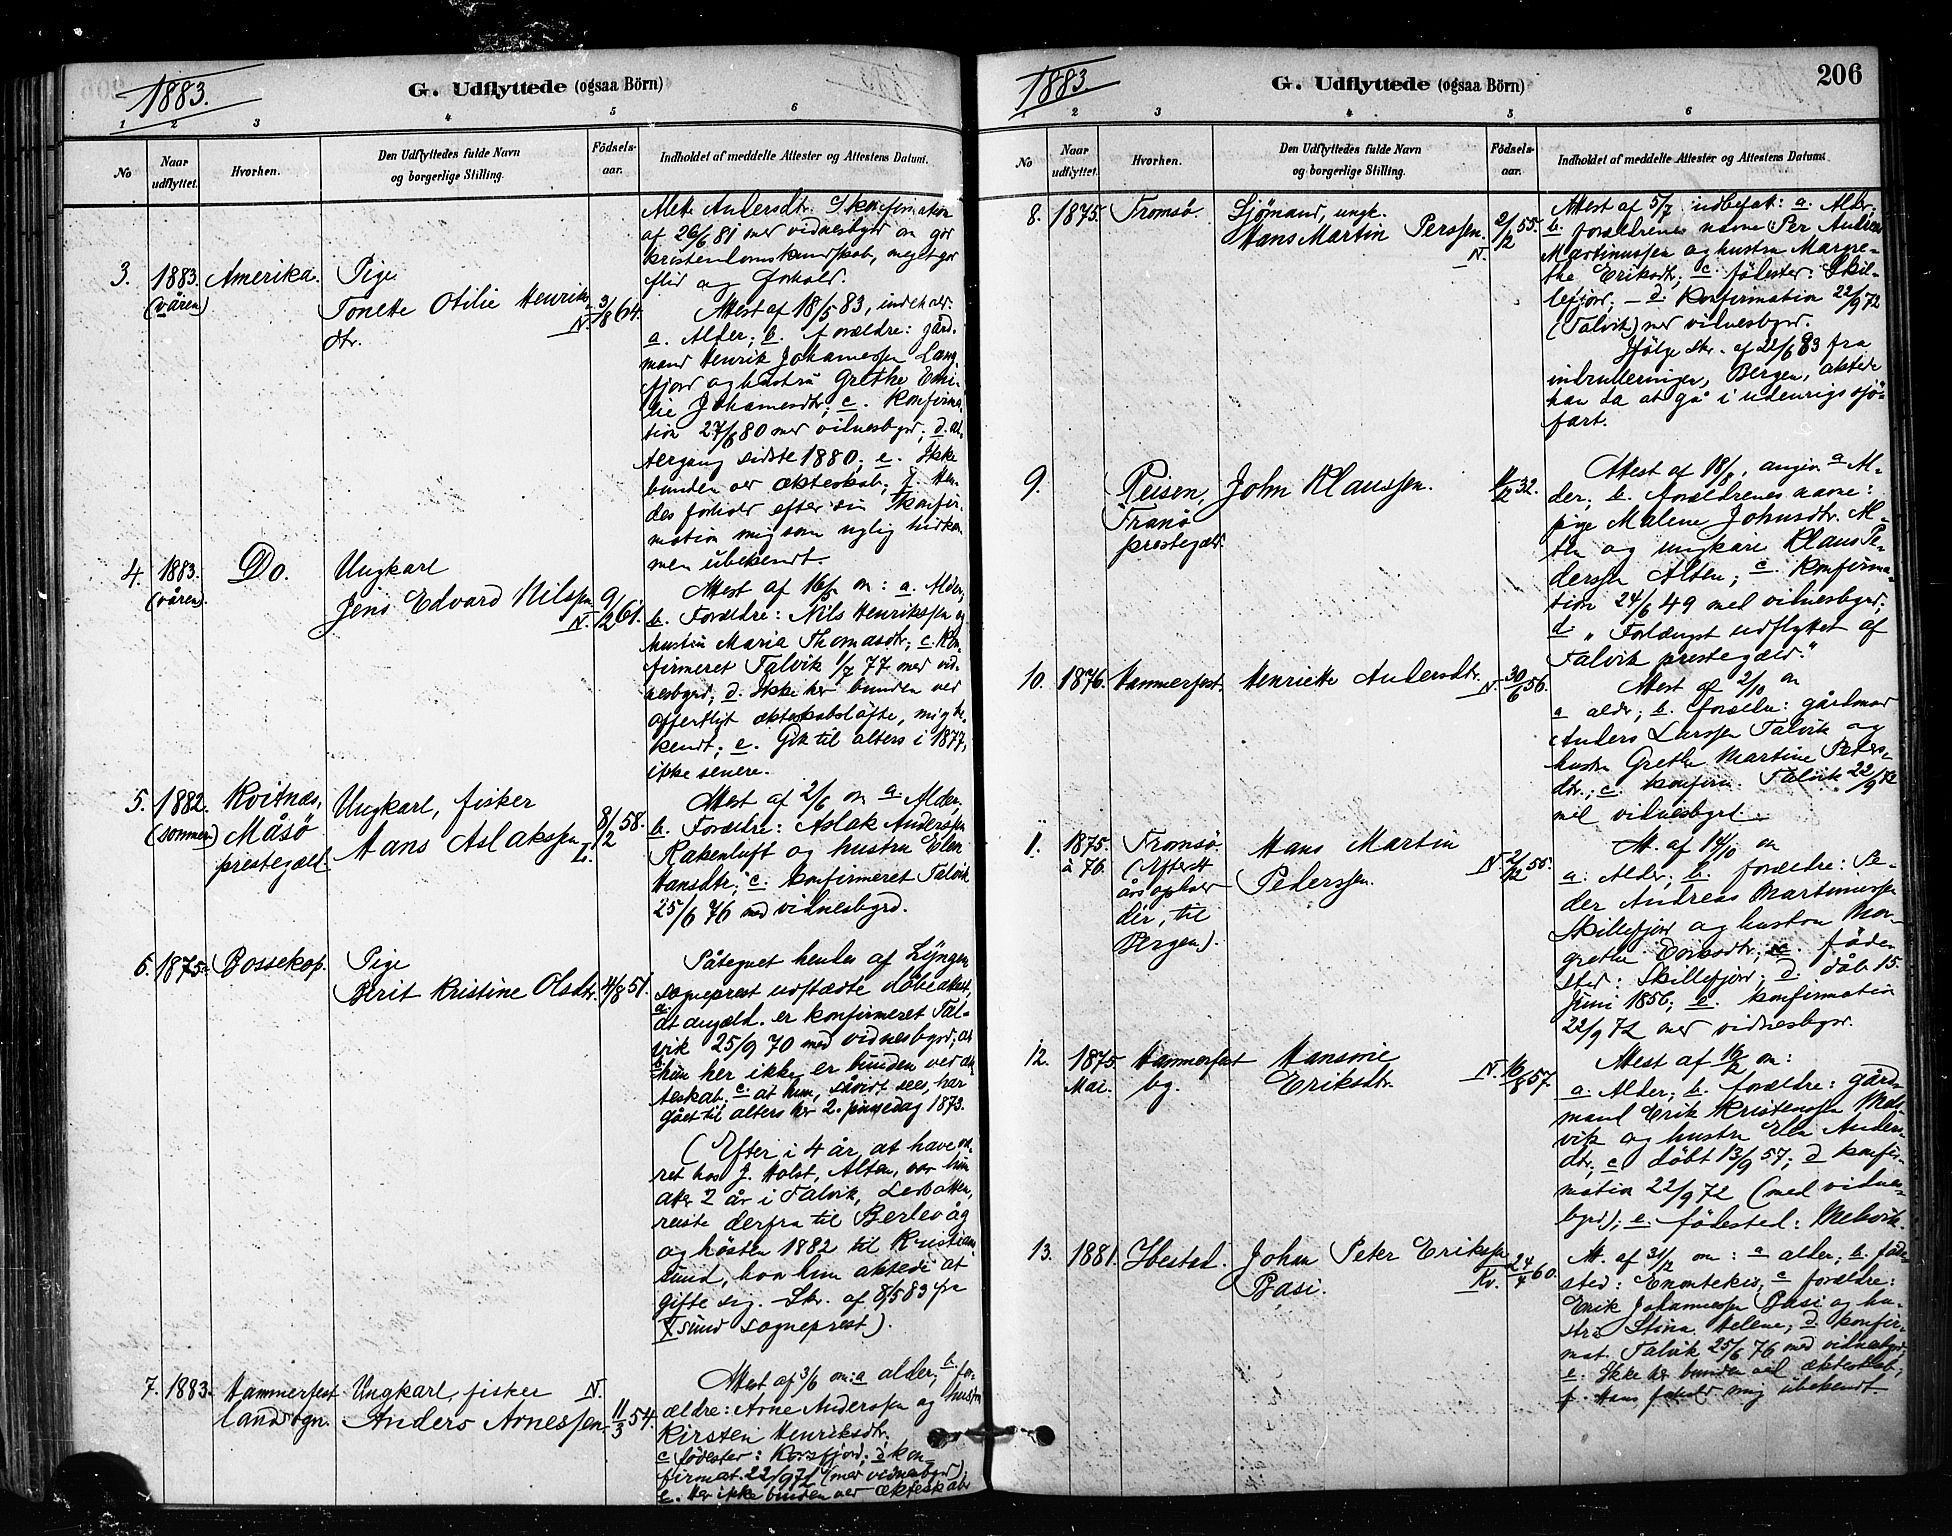 1883.
G. Udflyttede (ogsaa Börn)
1 2 3 4 5 6
No
Naar udflyttet.
Hvorhen.
Den Udflyttedes fulde Navn og borgerlige Stilling.
Födsels-aar.
Indholdet af meddelte Attester og Attestens Datum.
af 26/6 81 med vidnesbyrd om god
kristendomskundskab, meget god
flid og forhold.
3. 1883. (våren) Amerika. Pige
Tonette Otilie Henriks-
dtr. N. 3/8 64.
Attest af 18/5 83, indehold:
a. Alder; b. forældre: gård-
mand Henrik Johannessen Lang-
fjord og hustru Grethe Emi-
lie Johannesdtr; c. Konfirma-
tion 27/6 80 med vidnesbyrd; d. al-
tergang sidste 1880; e. Ikke
bunden ved ækteskab; f. Hen-
des forhold efter sin Konfir-
mation mig som nylig hidkom-
men ubekendt.
4. 1883. (våren). Do. Ungkarl
Jens Edvard Nilssen N. 9/2 61.
Attest af 16/5 om: a. Alder,
b. Forældre: Nils Henrikssen og
hustru Maria Thomasdtr; c. Kon-
firmeret Talvik 1/7 77 med vid-
nesbyrd; d. Ikke her bunden ved
offentligt ækteskabsløfte, mig be-
kendt; e. Gik til alters i 1877,
ikke senere.
5. 1882. (sommer) Kvitnæs, Måsö prestegæld. Ungkarl, fisker
Hans Aslakssen L. 8/2 58.
Attest af 2/6 om a. Alder,
b. Forældre: Aslak Anderssen
Rakenluft og hustru Elen
Hansdtr; c. Konfirmeret Talvik
25/6 76 med vidnesbyrd.
6. 1875. Bossekop. Pige
Berit Kristine Olsdtr. 4/8 51.
Påtegnet hendes af Lyngen
sogneprest udstædte döbeattest,
a. at angæld. er konfirmeret Tal-
vik 25/9 70 med vidnesbyrd; at
hun her ikke er bunden ved æk-
teskab; c. at hun, såvidt sees, har
gået til alters her 2. pinsedag 1873.
(Efter i 4 år at have væ-
ret hos J. Holst, Alten, var hun
2 år i Talvik,
reiste derfra til Berlevåg
og hösten 1882 til Kristian-
sund, hvor hun aktede at
gifte sig. – Skr. af 8/5 83 fra
Xsund sogneprest).
7. 1883. Hammerfest landsogn. Ungkarl, fisker N.
Anders Arnessen 11/3 54.
Attest af 3/6 om: a alder; b. for-
ældre: Arne Anderssen og hustru
Kirsten Henriksdtr.
c födested: Korsfjord; d kon-
firmat. 22/9 72 (med vidnesbyrd)
e. Her ikke bunden ved ækteskab
1883.
G. Udflyttede (ogsaa Börn)
206
1 2 3 4 5 6
No
Naar udflyttet.
Hvorhen.
Den Udflyttedes fulde Navn og borgerlige Stilling.
Födsels-aar.
Indholdet af meddelte Attester og Attestens Datum.
8. 1875. Tromsö. Sjömand, ungk.
Hans Martin Perssen. N. 2/12 55.
Attest af 5/7 indbefat: a. Alder,
b. forældrenes navne (Per Andreas
Martinussen og hustru Margre-
the Eriksdtr; c. födested: Skil-
lefjord; – d. Konfirmation 22/9 72
(Talvik) med vidnesbyrd.
Ifölge skr. af 21/6 83 fra
indrulleringen, Bergen, aktede
han da at gå i udenrigs sjö-
fart.
9. Reisen, Tranö prestegæld. John Klaussen. 32.
Attest af 18/8, angiv. a Al-
der; b. forældrenes navne:
pige Malene Johnsdtr. Al-
ten og ungkarl Klaus Pe-
derssen Alten; c. Konfirma-
tion 24/6 49 med vidnesbyrd;
d. "Forlængst udflyttet af
Talvik prestegæld."
10. 1876. Hammerfest. Henriette Andersdtr. N. 30/6 56.
Attest af 2/10 om
a alder; b. forældre: gårdmand
Anders Larssen Talvik og
hustru Grethe Martine Peders-
dtr.; c. konfirm. Talvik 22/9 72
med vidnesbyrd.
11. 1875. à 76. Tromsö. (Efter et års ophold der, til Bergen). Hans Martin
Pederssen. N. 2/12 55.
At. af 14/10 om
a. Alder; b. forældre: Pe-
der Andreas Martinussen
Skillefjord og hustru Mar-
grethe Eriksdtr; c. föde-
sted: Skillefjord; d. dåb 15.
Juni 1856; e. konfirmation
22/9 72 med vidnesbyrd.
12. 1875. Mai. Hammerfest bg. Hansine
Eriksdtr. N. 16/8 57.
Attest af 16/12 om:
a. Alder; b. forældre: gård-
mand Erik Kristenssen Mel-
vik og hustru Elen Anders-
dtr; c döbt 13/9 57; d konfir-
mation 22/9 72 (med vidnes-
byrd); e. födested: Melvik.
13. 1881. Ibestad. Johan Peter Erikssen
Basi. Kv. 24/4 60.
At. af 31/12 om: a alder; b. föde-
sted: Enontekis; c forældre:
Erik Johannessen Basi og hu-
stru Stina Helene; d. konfir-
mat. Talvik 25/6 76 med vidnesbyrd,
e. Ikke her bunden ved ækteskab;
f. Hans forhold mig ubekendt